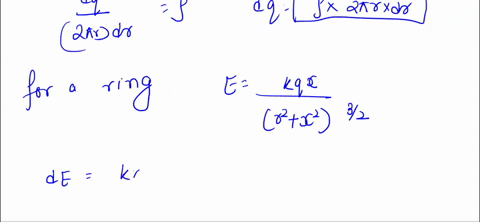 dq / (2πr)dr = ρ    dq = ρ × 2πr × dr
for a ring    E = kqx / (r²+x²) 3/2
dE = k